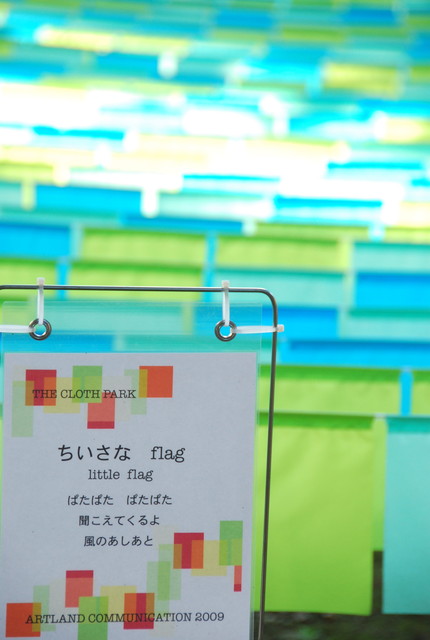 THE CLOTH PARK
ちいさな flag
little flag
ぱたぱた ぱたぱた
聞こえてくるよ
風のあしあと
ARTLAND COMMUNICATION 2009